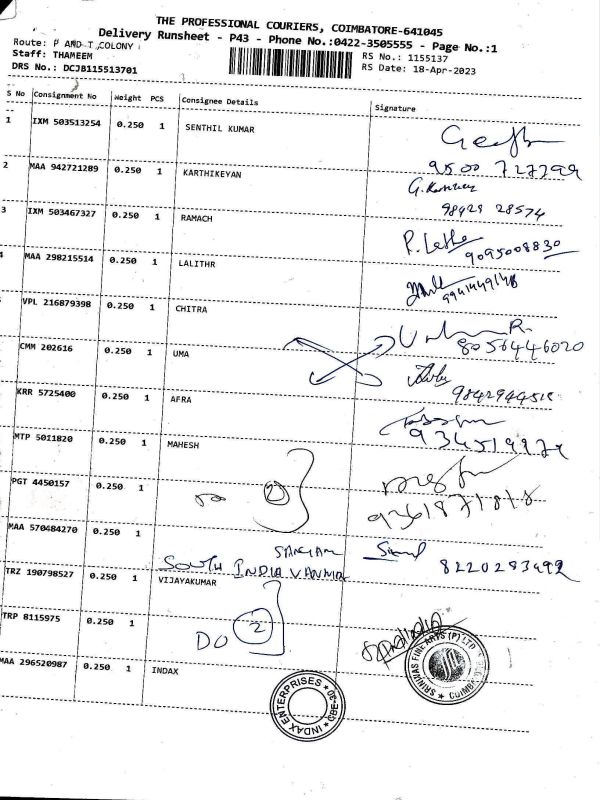 THE PROFESSIONAL COURIERS, COIMBATORE-641045
Delivery Runsheet - P43 - Phone No.:0422-3505555 - Page No.:1
Route: P AND T COLONY
Staff: THAMEEM
DRS No.: DCJB115513701
RS No.: 1155137
RS Date: 18-Apr-2023
S No Consignment No Weight PCS Consignee Details Signature
1 IXM 503513254 0.250 1 SENTHIL KUMAR
9500 727799
2 MAA 942721289 0.250 1 KARTHIKEYAN
98429 28574
3 IXM 503467327 0.250 1 RAMACH
9095008830
4 MAA 298215514 0.250 1 LALITHR
VPL 216879398 0.250 1 CHITRA
8056446020
CMM 202616 0.250 1 UMA
KRR 5725400 0.250 1 AFRA
MTP 5011820 0.250 1 MAHESH
PGT 4450157 0.250 1
9361871818
MAA 570484270 0.250 1
SANGAM
SOUTH INDIA VANNIAR
TRZ 190798527 0.250 1 VIJAYAKUMAR
TRP 8115975 0.250 1
DO 2
SRINIVAS FINE ARTS (P) LTD
COIMBATORE
MAA 296520987 0.250 1 INDAX
INDAX ENTERPRISES
CBE-30